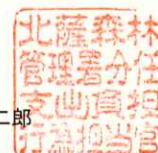 二郎
北薩森林
管理署分任
支出負担
行為担当官